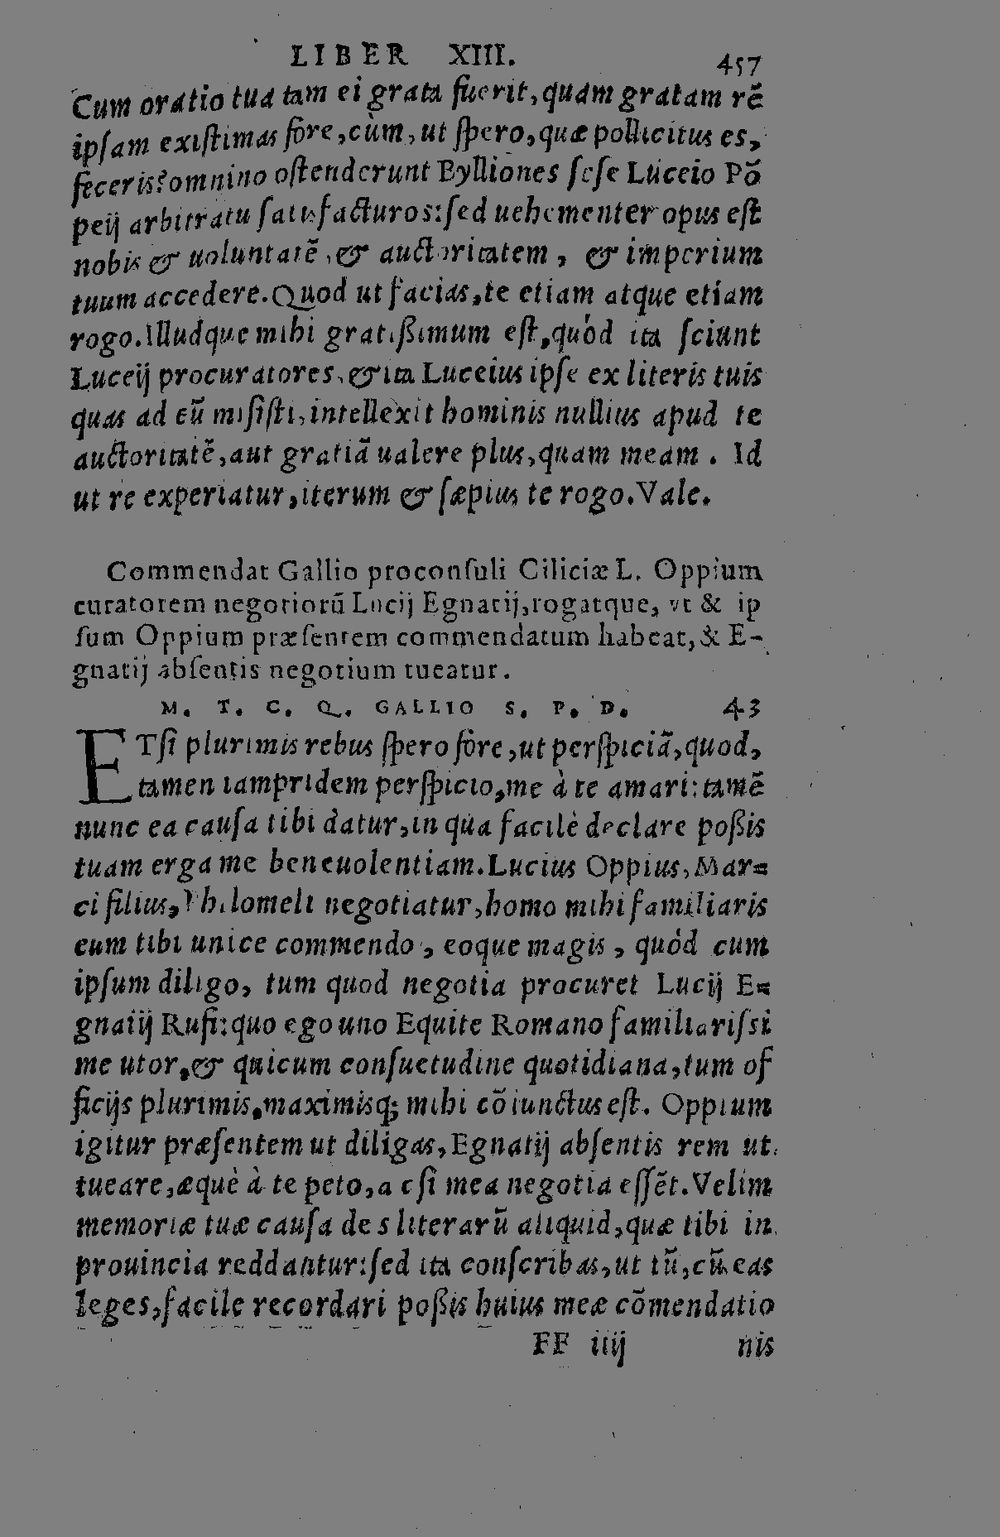 LIBER XIII. 457
Cum oratio tua tam ei grata fuerit, quàm gratam rẽ
ipſam exiſtimas fore, cùm, ut ſpero, quæ pollicitus es,
feceris? omnino oſtenderunt Bylliones ſeſe Luceio Põ
peij arbitratu ſatisfacturos: ſed uehementer opus eſt
nobis & uoluntatẽ, & auctoritatem, & imperium
tuum accedere. Quod ut facias, te etiam atque etiam
rogo. Illudque mihi gratißimum eſt, quòd ita ſciunt
Luceij procuratores, & ita Luceius ipſe ex literis tuis
quas ad eũ miſiſti, intellexit hominis nullius apud te
auctoritatẽ, aut gratiã ualere plus, quàm meam. Id
ut re experiatur, iterum & ſæpius te rogo. Vale.
Commendat Gallio proconſuli Ciliciæ L. Oppium
curatorem negotiorũ Lucij Egnatij, rogatque, vt & ip
ſum Oppium præſentem commendatum habeat, & E-
gnatij abſentis negotium tueatur.
M. T. C. Q. GALLIO S. P. D. 43
ETſi plurimis rebus ſpero fore, ut perſpiciã, quod,
tamen iampridem perſpicio, me à te amari: tamẽ
nunc ea cauſa tibi datur, in qua facilè declare poßis
tuam erga me beneuolentiam. Lucius Oppius, Mar=
ci filius, Philomeli negotiatur, homo mihi familiaris
eum tibi unice commendo, eoque magis, quòd cum
ipſum diligo, tum quod negotia procuret Lucij E=
gnatij Rufi: quo ego uno Equite Romano familiariſsi
me utor, & quicum conſuetudine quotidiana, tum of
ficijs plurimis, maximisq; mihi cõiunctus eſt. Oppium
igitur præſentem ut diligas, Egnatij abſentis rem ut
tueare, æquè à te peto, ac ſi mea negotia eſſẽt. Velim
memoriæ tuæ cauſa des literarũ aliquid, quæ tibi in
prouincia reddantur: ſed ita conſcribas, ut tũ, cũ eas
leges, facile recordari poßis huius meæ cõmendatio
FF iiij nis